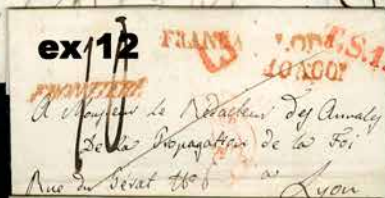 ex 12
FRANCA
LODI
T.S.1.
A Monsieur Le Rédacteur des Annales
De la Propagation de la Foi
Rue du Pérat N° 6 a Lyon